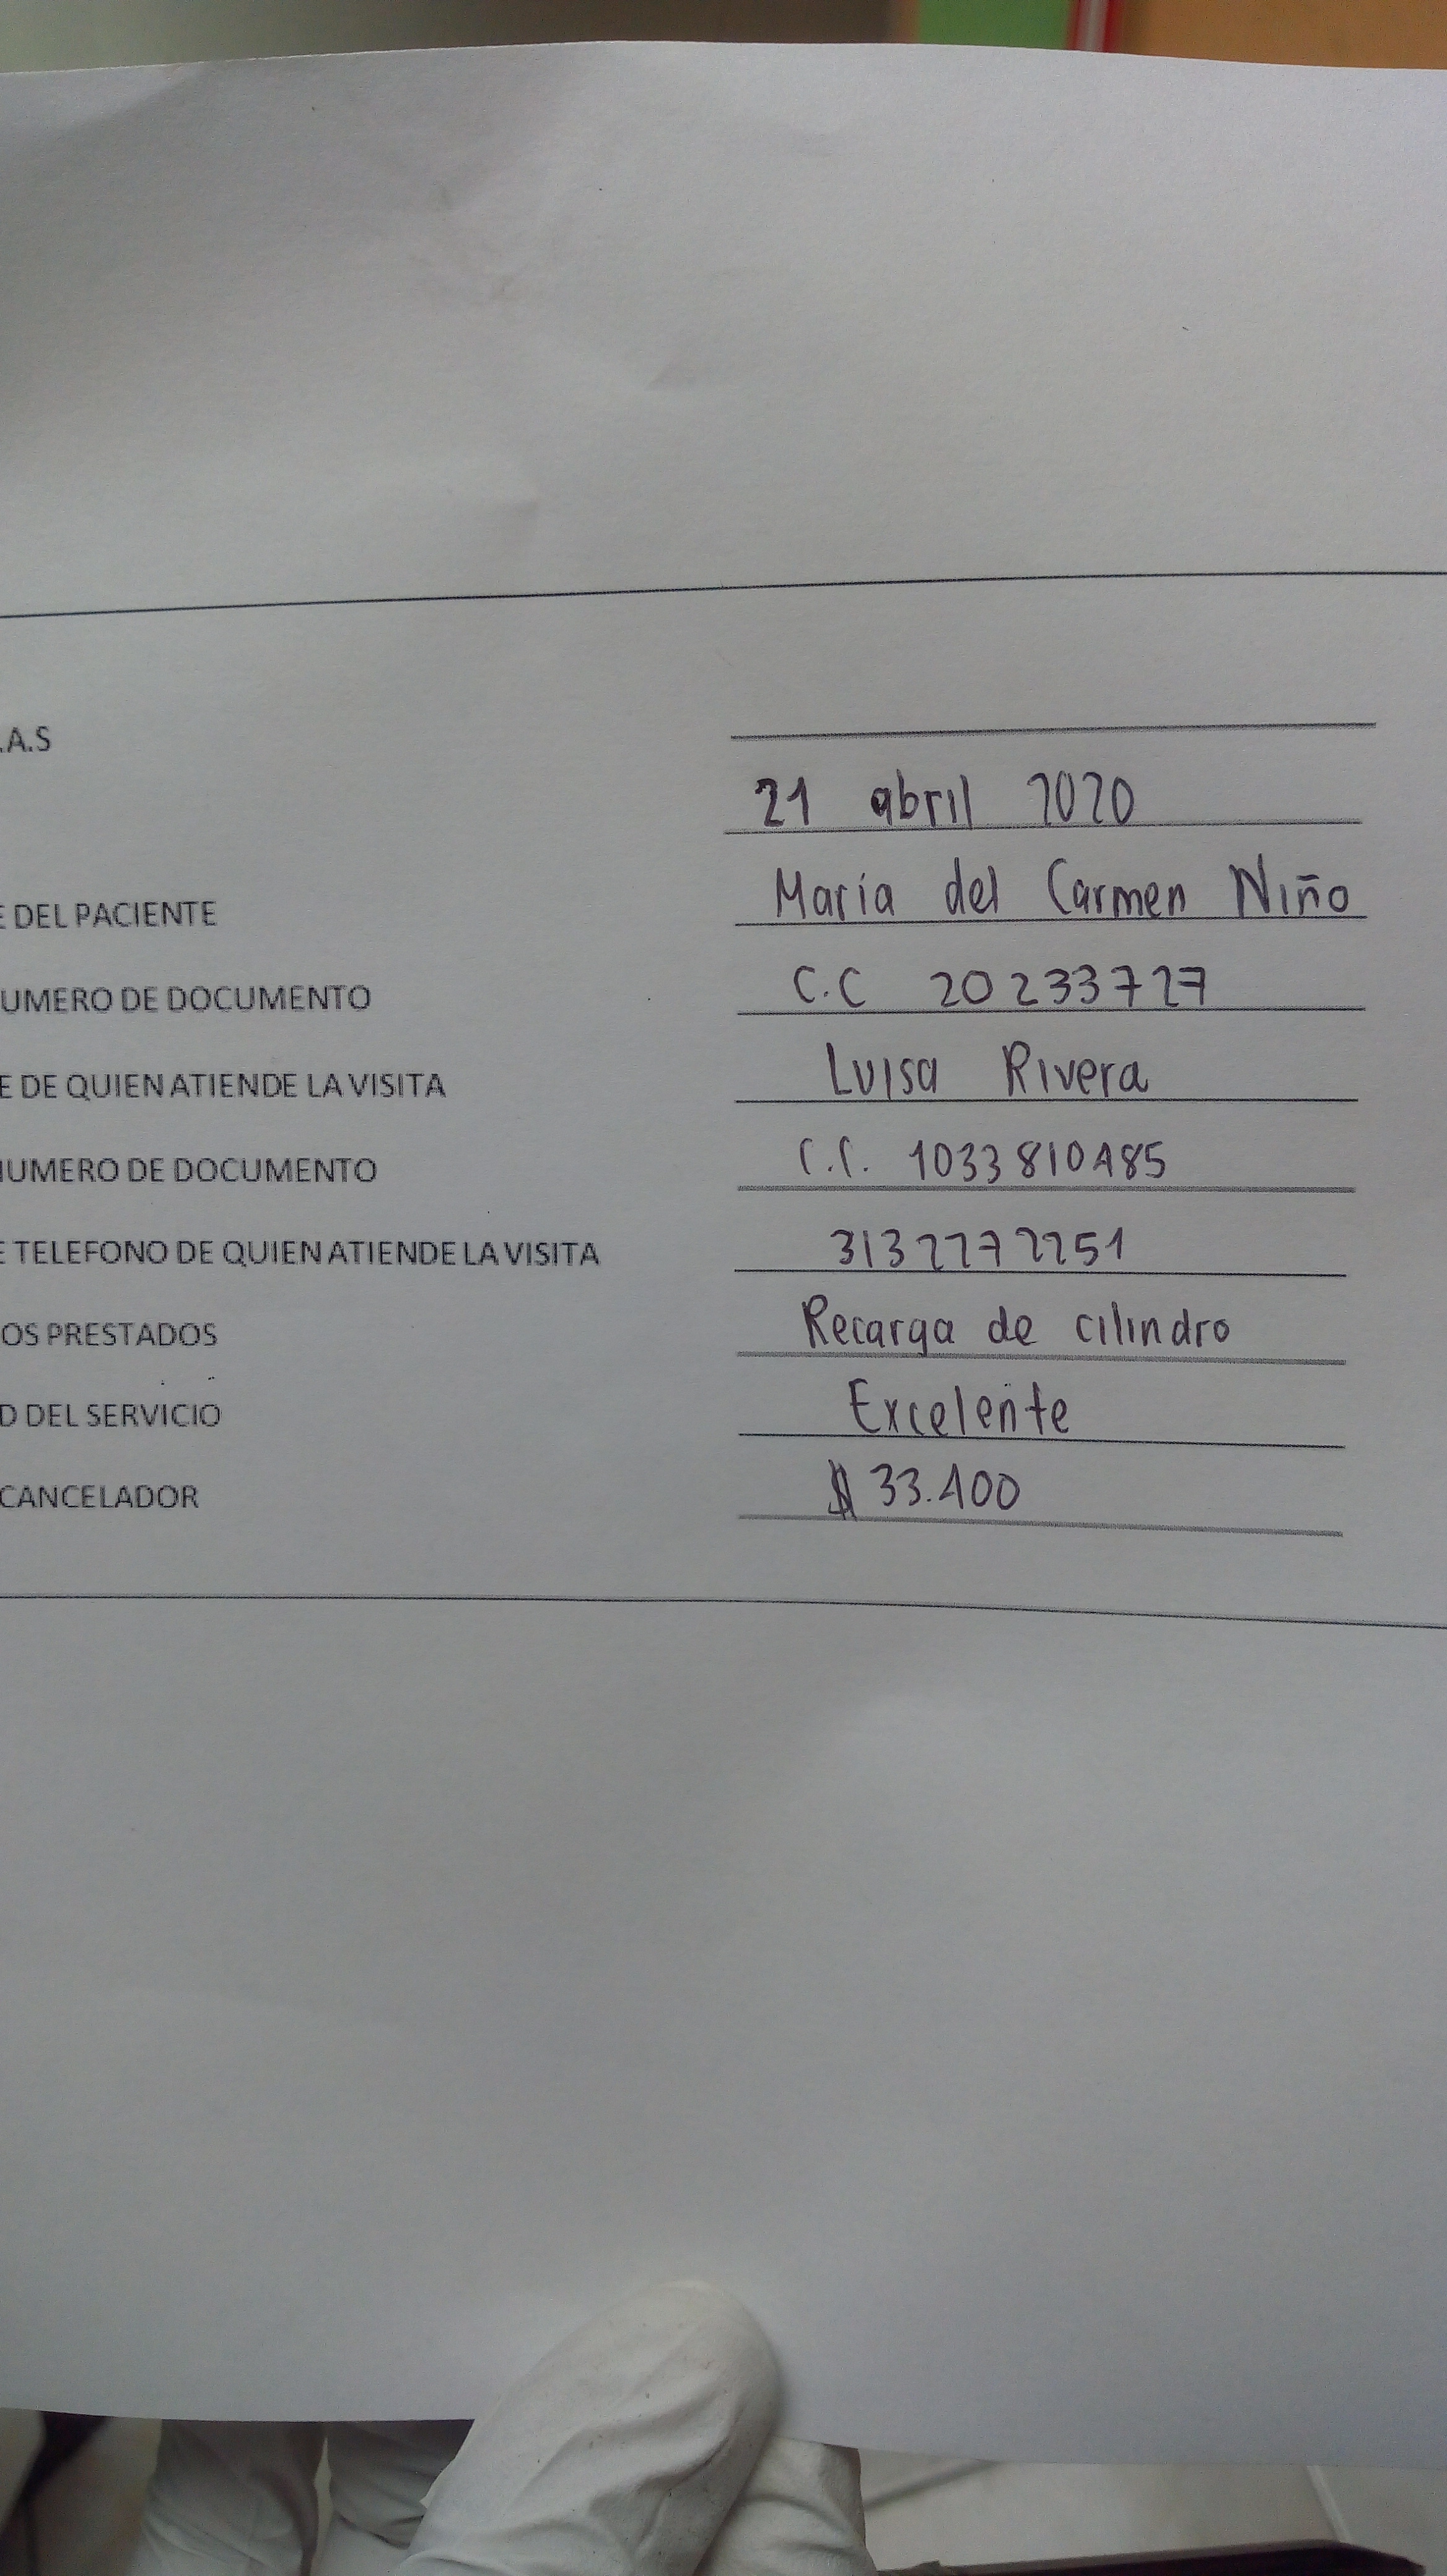 .A.S
21 abril 2020
E DEL PACIENTE María del Carmen Niño
UMERO DE DOCUMENTO C.C 20233727
E DE QUIEN ATIENDE LA VISITA Luisa Rivera
NUMERO DE DOCUMENTO C.C. 1033810485
E TELEFONO DE QUIEN ATIENDE LA VISITA 3132272251
OS PRESTADOS Recarga de cilindro
D DEL SERVICIO Excelente
CANCELADOR $ 33.400